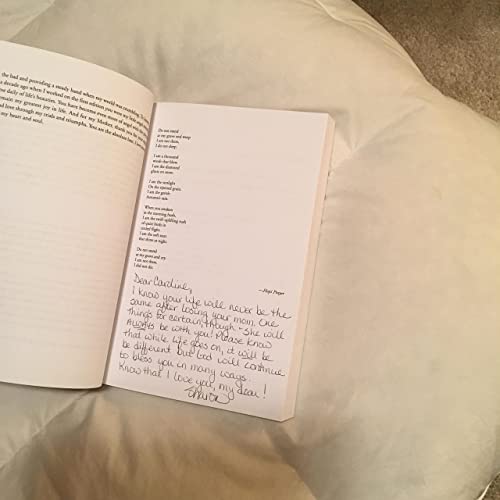 the bad and providing a steady hand when my world was
a decade ago when I worked on the first edition you were my little
me daily of life's beauties. You have become even more of
remain my greatest joy in life. And for my Mother, thank you for
and love through my trials and triumphs. You are the absolute best.
my heart and soul.
Do not stand
at my grave and weep
I am not there,
I do not sleep.
I am a thousand
winds that blow.
I am the diamond
glints on snow.
I am the sunlight
On the ripened grain.
I am the gentle
Autumn's rain.
When you awaken
in the morning hush,
I am the swift uplifting rush
of quiet birds in
circled flight.
I am the soft stars
that shine at night.
Do not stand
at my grave and cry.
I am not there.
I did not die.
—Hopi Prayer
Dear Caroline,
I know your life will never be the
same after losing your mom. One
things for certain, though - She will
always be with you! Please know
that while life goes on, it will be
be different but God will continue
to bless you in many ways.
Know that I love you, my dear!